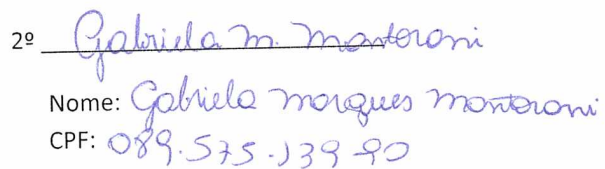 2º Gabriela M. Mantovani
Nome: Gabriela Marques Mantovani
CPF: 089.575.139-90